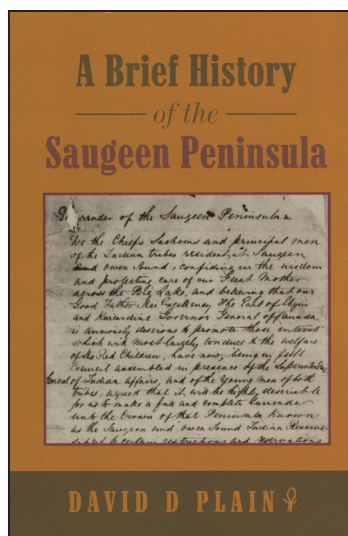 A Brief History
of the
Saugeen Peninsula
Surrender of the Saugeen Peninsula
We the Chiefs Sachems and principal men
of the Indian tribes resident at Saugeen
and Owen Sound, confiding in the wisdom
and protecting care of our Great Mother
across the Big Lake, and believing that our
Good Father, His Excellency, The Earl of Elgin
and Kincardine Governor General of Canada
is anxiously desirous to promote those interests
which will most largely conduce to the welfare
of His Red Children, have now, being in full
Council assembled in presence of the Superintendent
General of Indian Affairs, and of the young men of both
tribes, agreed that it will be highly desirable
for us to make a full and complete Surrender
unto the Crown of that Peninsula known
as the Saugeen and Owen Sound Indian Reserve
subject to certain restrictions and reservations
DAVID D PLAIN